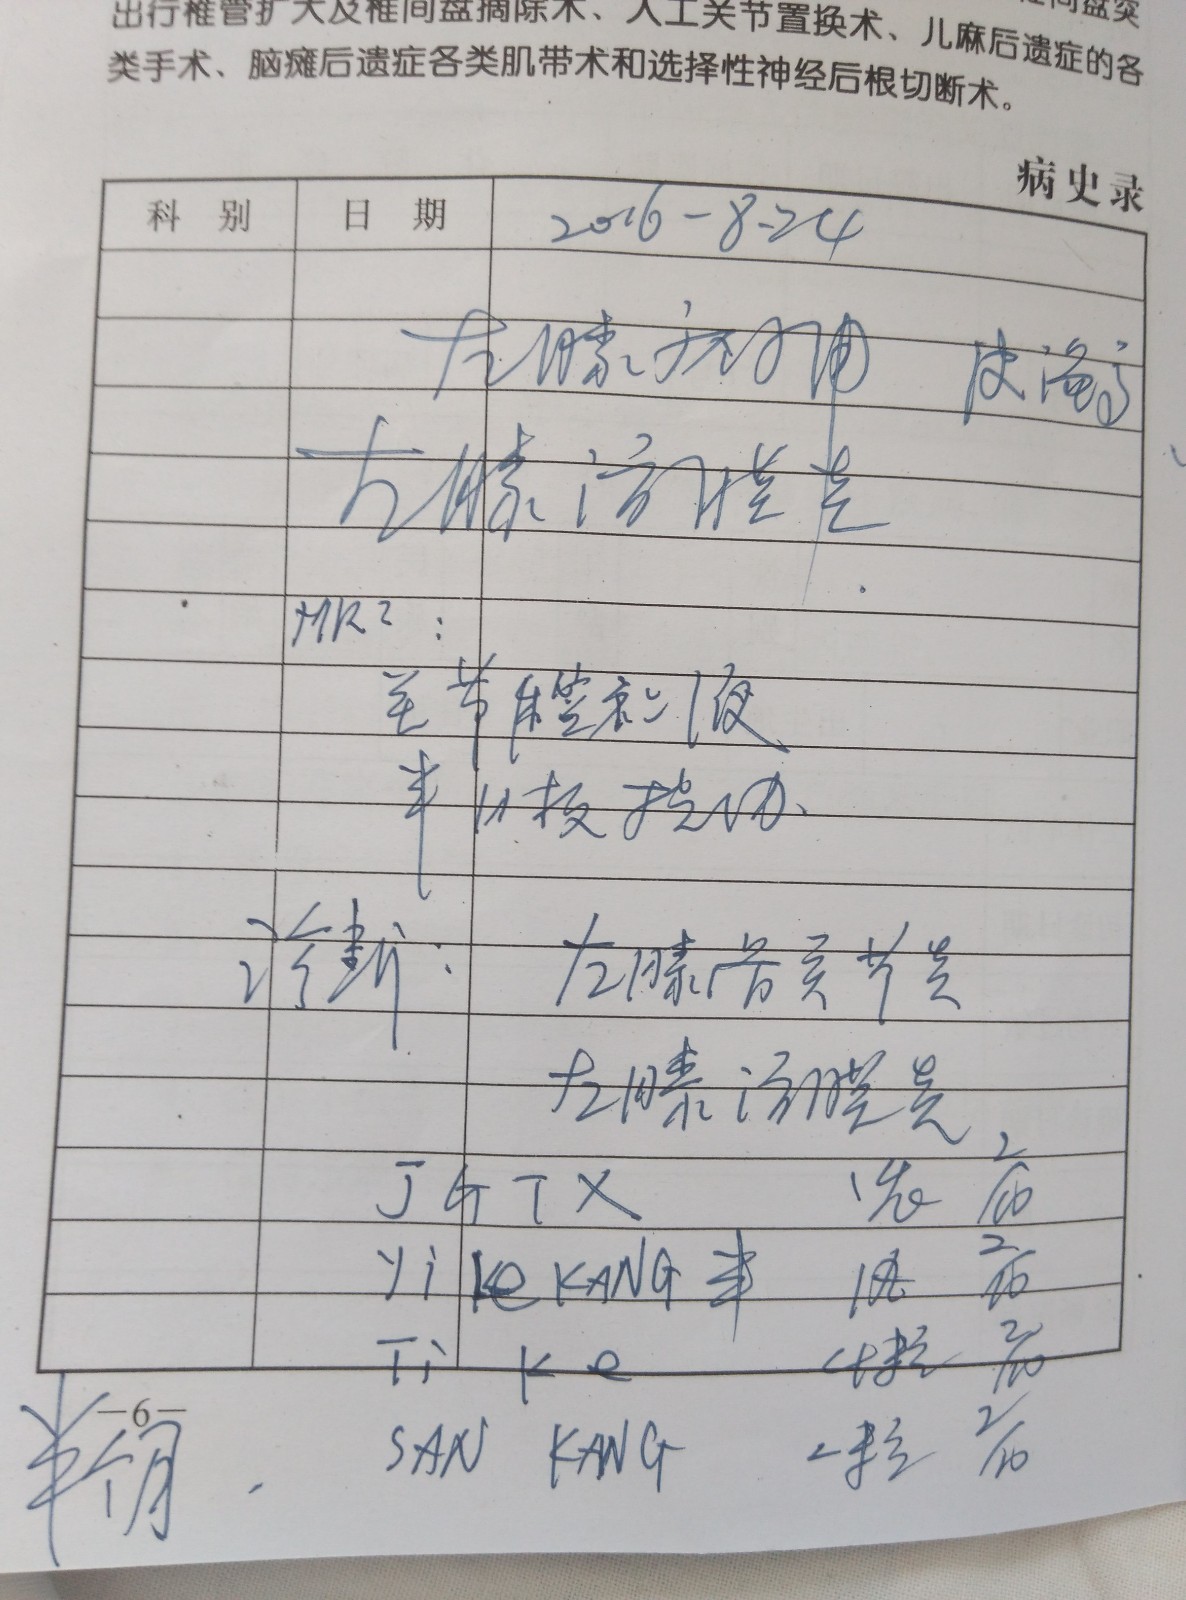 出行椎管扩大及椎间盘摘除术、人工关节置换术、儿麻后遗症的各
类手术、脑瘫后遗症各类肌带术和选择性神经后根切断术。
病史录
科 别 日 期 2016-8-24
左膝
左膝滑膜炎
MRI:
关节腔积液
半月板损伤
诊断: 左膝骨关节炎
左膝滑膜炎
JGTX 1袋 2/日
Yi Ke KANG 半 2/日
Ti Ke 4粒 2/日
SAN KANG 2粒 2/日
—6—
半个月